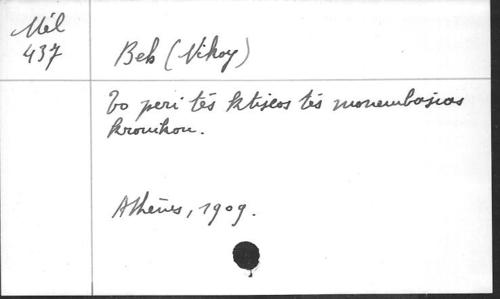 Mél
437
Beb (Nikoy)
To peri tés Ktiseos tés monembasias
kronikou.
Athènes, 1909.